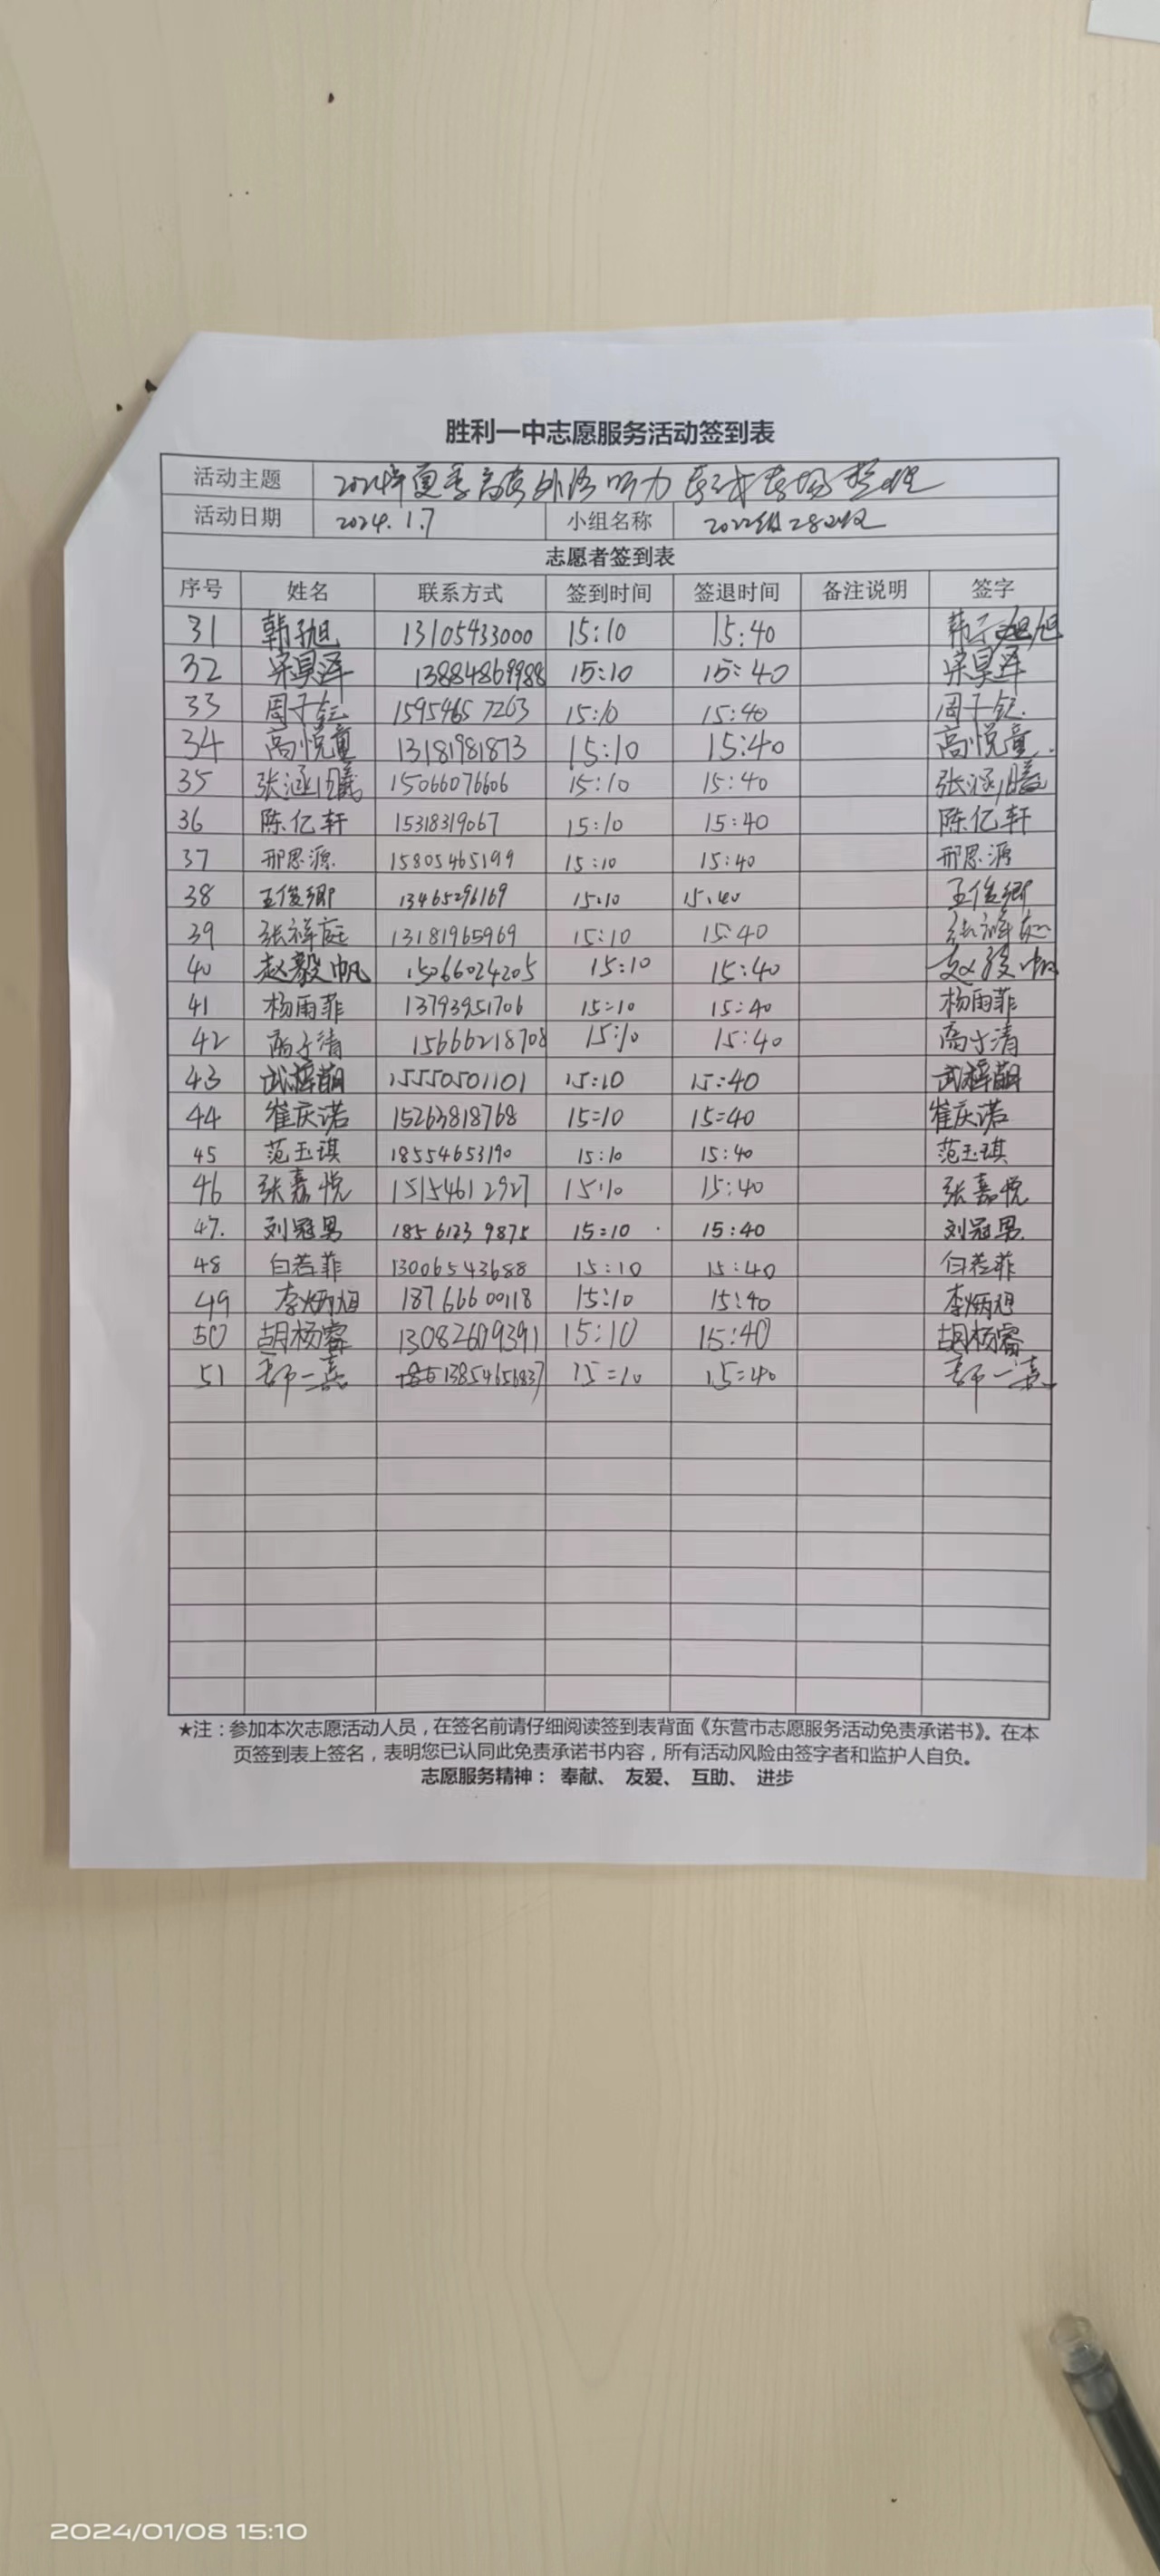 胜利一中志愿服务活动签到表
活动主题 2024年夏季高考外语听力考试考场整理
活动日期 2024.1.7 小组名称 2022级282班
志愿者签到表
序号 姓名 联系方式 签到时间 签退时间 备注说明 签字
31 韩子旭 13105433000 15:10 15:40 韩子旭
32 宋昊泽 13884869988 15:10 15:40 宋昊泽
33 周子钰 15954657263 15:10 15:40 周子钰
34 高悦童 13181981873 15:10 15:40 高悦童
35 张涵曦 15066076606 15:10 15:40 张涵曦
36 陈亿轩 15318319067 15:10 15:40 陈亿轩
37 邢思源 15805465199 15:10 15:40 邢思源
38 王俊卿 13465296169 15:10 15:40 王俊卿
39 张祥庭 13181965969 15:10 15:40
40 赵毅帆 15066024205 15:10 15:40 赵毅帆
41 杨雨菲 13793951706 15:10 15:40 杨雨菲
42 高子清 15666218708 15:10 15:40 高子清
43 武梓萌 15550501101 15:10 15:40 武梓萌
44 崔庆诺 15263818768 15:10 15:40 崔庆诺
45 范玉琪 18554653190 15:10 15:40 范玉琪
46 张嘉悦 15154612927 15:10 15:40 张嘉悦
47. 刘冠男 18561239875 15:10 15:40 刘冠男
48 白若菲 13006543688 15:10 15:40 白若菲
49 李炳旭 18766600118 15:10 15:40 李炳旭
50 胡杨睿 13082609391 15:10 15:40 胡杨睿
51 13854656837 15:10 15:40
★注：参加本次志愿活动人员，在签名前请仔细阅读签到表背面《东营市志愿服务活动免责承诺书》。在本
页签到表上签名，表明您已认同此免责承诺书内容，所有活动风险由签字者和监护人自负。
志愿服务精神： 奉献、 友爱、 互助、 进步
2024/01/08 15:10